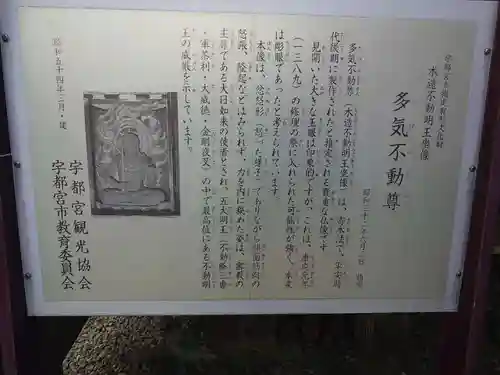 宇都宮市指定有形文化財
木造不動明王坐像
多気不動尊
昭和三十二年八月二日 指定
多気不動尊（木造不動明王坐像）は、寄木法で、平安時
代後期に製作されたと推定される貴重な仏像です。
見開いた大きな玉眼は印象的ですが、これは、康応元年
（一三八九）の修理の際に入れられた可能性が強く、本来
は彫眼であったと考えられています。
本像は、忿怒形（怒った様子）でありながら
怒張、隆起などはみられず、力を内に秘めた姿は、密教の
主尊である大日如来の使者とされ、五大明王（不動・降三世
・軍荼利・大威徳・金剛夜叉）の中で最高位にある不動明
王の威厳を示しています。
昭和五十四年三月・建
宇都宮観光協会
宇都宮市教育委員会